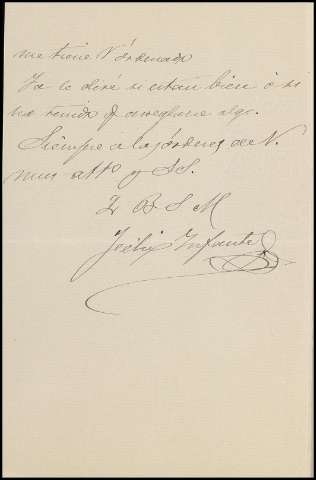 me tiene V. ordenado
Ya le diré si estan bien ó si
hé tenido q arreglarme algo.
Siempre a las órdenes de V.
muy atto y S.S.
Q B S M
Felix Infante